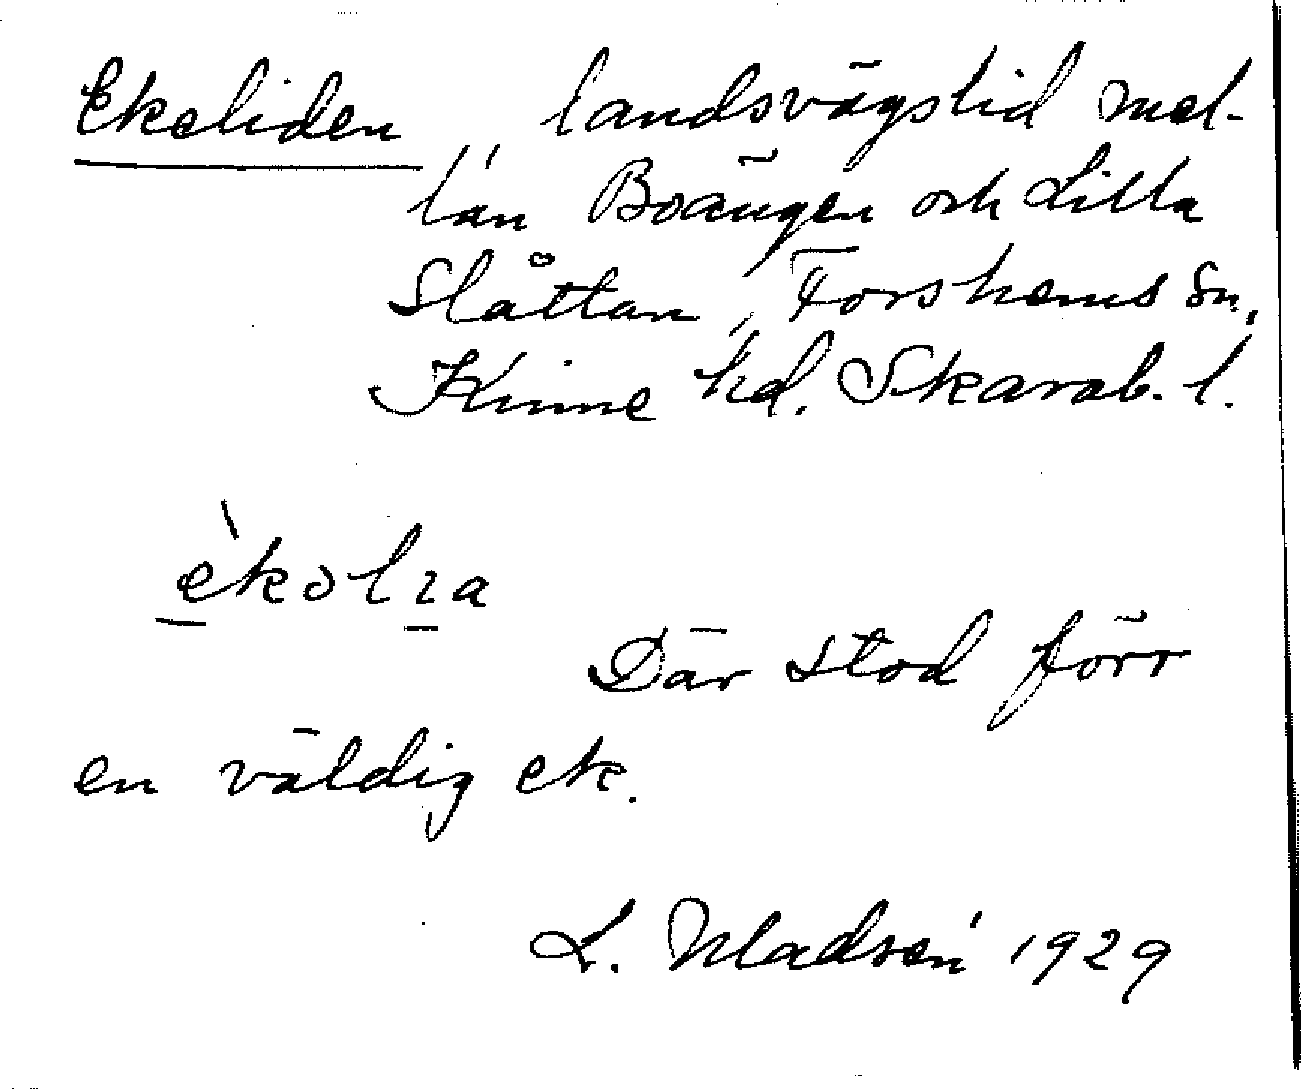 Ekeliden, landsvägslid mel-
lan Boängen och Lilla
Slåttan, Forshems sn.,
Kinne hd. Skarab. l.
èkolıa
Där stod förr
en väldig ek.
L. Madsén 1929